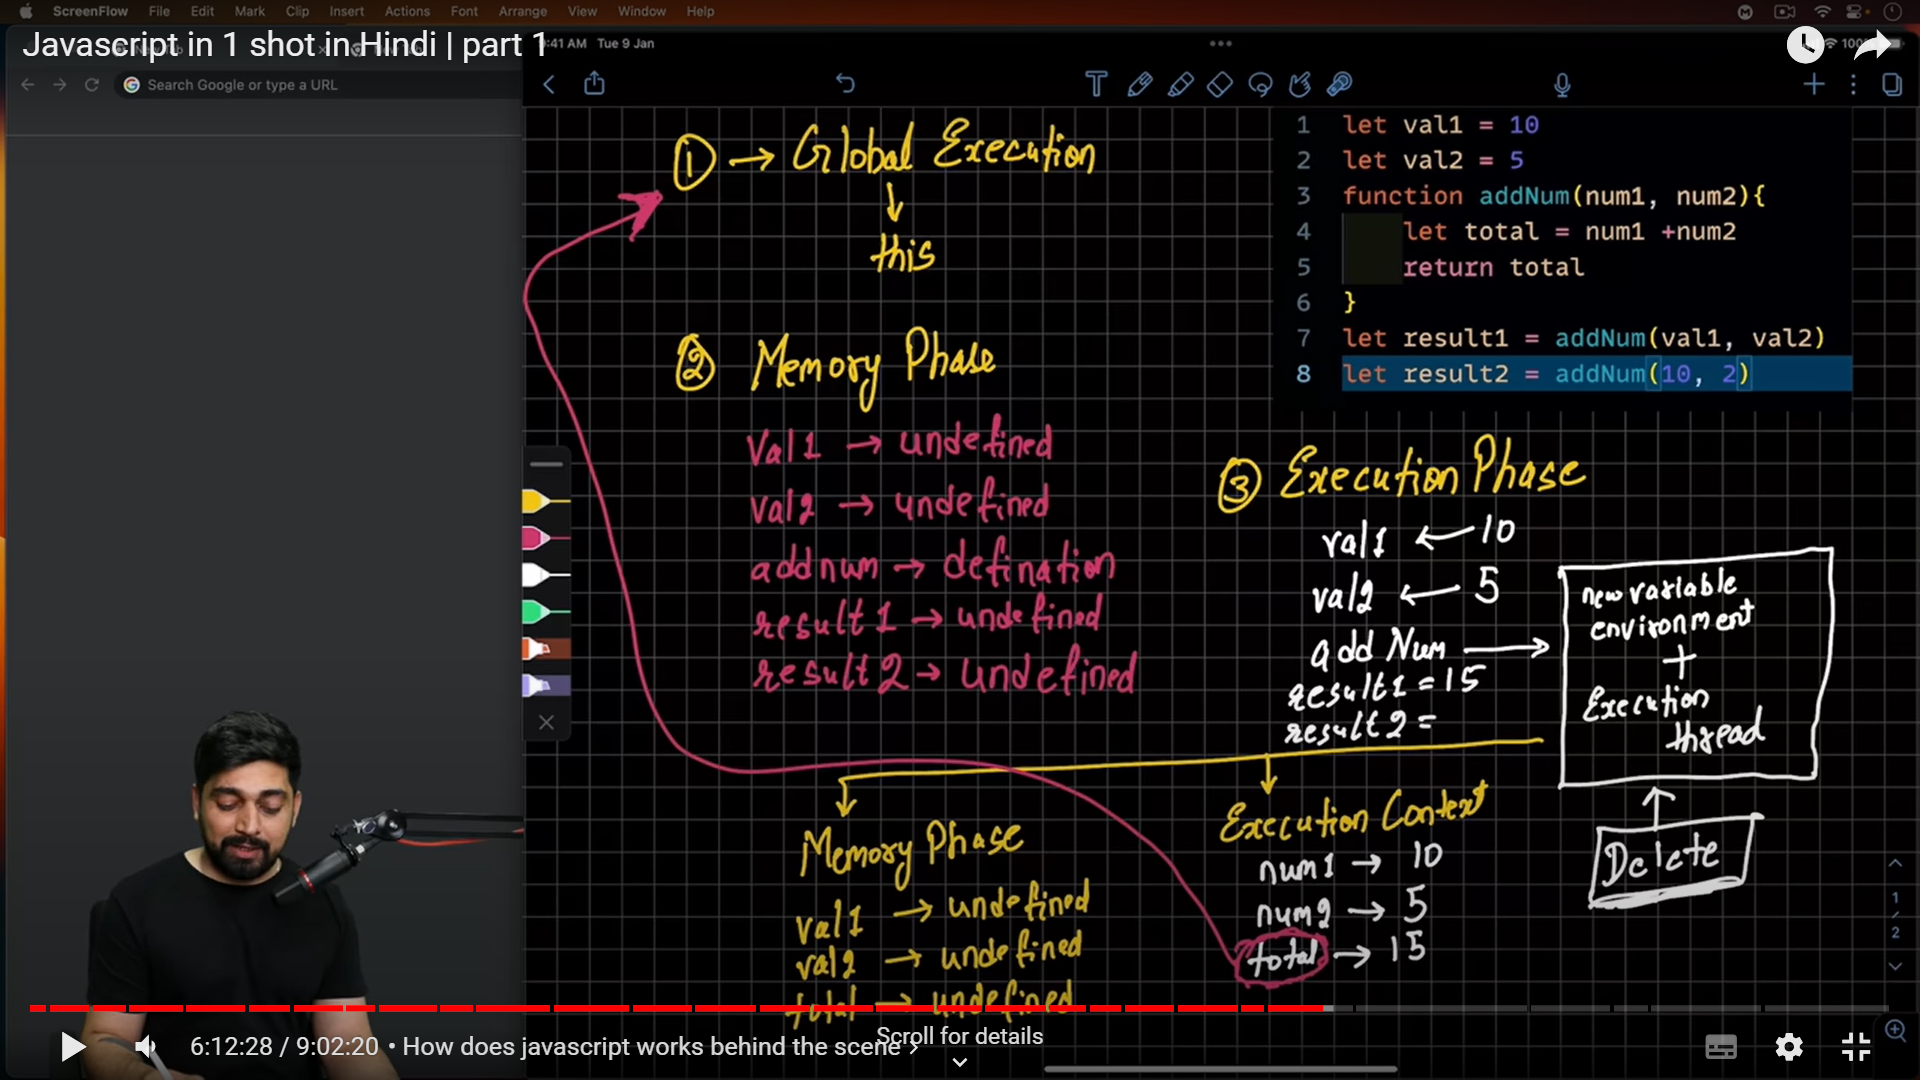 ScreenFlow File Edit Mark Clip Insert Actions Font Arrange View Window Help
Javascript in 1 shot in Hindi | part 1
9:41 AM Tue 9 Jan
Search Google or type a URL
① → Global Execution
↓
this
② Memory Phase
Val1 → undefined
val2 → undefined
addnum → defination
result1 → undefined
result2 → undefined
1 let val1 = 10
2 let val2 = 5
3 function addNum(num1, num2){
4 let total = num1 +num2
5 return total
6 }
7 let result1 = addNum(val1, val2)
8 let result2 = addNum(10, 2)
③ Execution Phase
val1 ← 10
val2 ← 5
add Num →
result1 = 15
result2 =
new variable
environment
+
Execution
thread
Delete
Memory Phase
val1 → undefined
val2 → undefined
total → undefined
Execution Context
num1 → 10
num2 → 5
total → 15
1
/
2
6:12:28 / 9:02:20 • How does javascript works behind the scene ›
Scroll for details